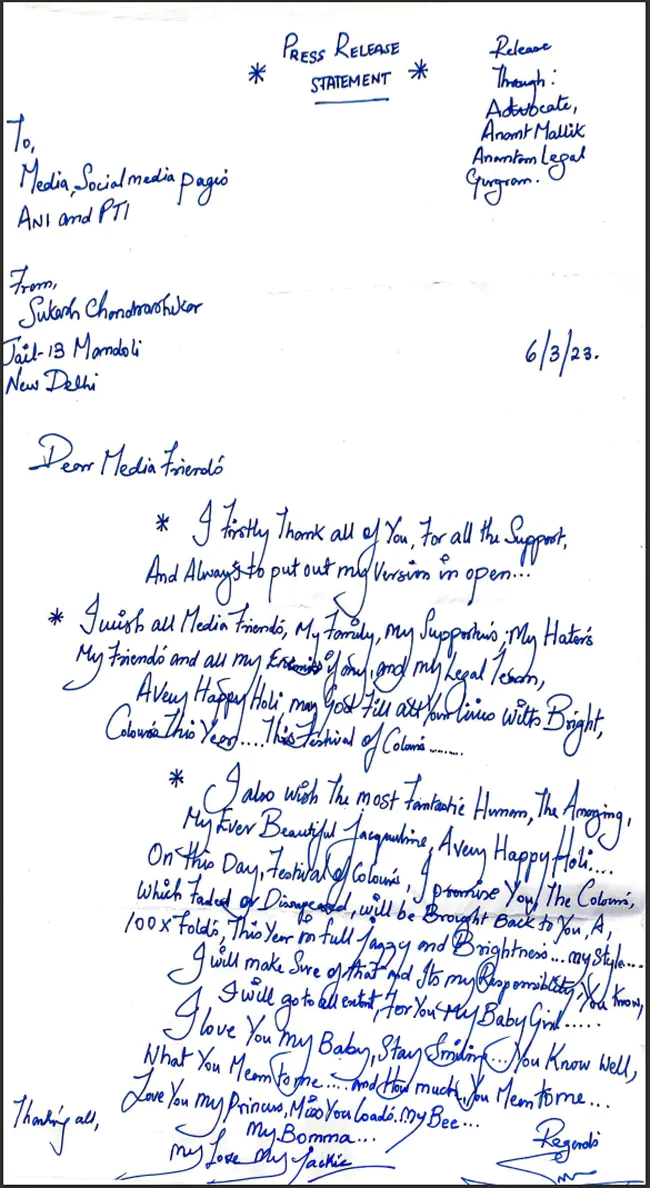 * PRESS RELEASE *
STATEMENT
Release
Through:
Advocate,
Anant Mallik
Anantam Legal
Gurgram.
To,
Media, Social media pages
ANI and PTI
From,
Sukash Chandrashekar
Jail-13 Mandoli
New Delhi
6/3/23.
Dear Media Friends
* I Firstly Thank all of You, For all the Support,
And Always to put out my Version in open...
* I wish all Media Friends, My Family, My Supporters, My Haters
My Friends and all my Enemies if any, and my Legal Team,
A very Happy Holi, may God Fill all Your lives with Bright,
Colours This Year.... This Festival of Colours.......
* I also wish The most Fantastic Human, The Amazing,
My Ever Beautiful Jacqueline, A very Happy Holi....
On this Day, Festival of Colours, I promise You, The Colours,
which Faded or Disapeared, will be Brought Back to You, A,
100 X Folds, This Year in full Jazzy and Brightness... my Style....
I will make Sure of that and Its my Responsiblity, You know,
I will go to all extent, For You My Baby Girl.....
I love You my Baby, Stay Smiling... You Know Well,
What You Mean to me.... and How much You Mean to me...
Love You my Princess, Miss You loads... my Bee...
My Bomma...
my Love my Jackie
Thanking all,
Regards